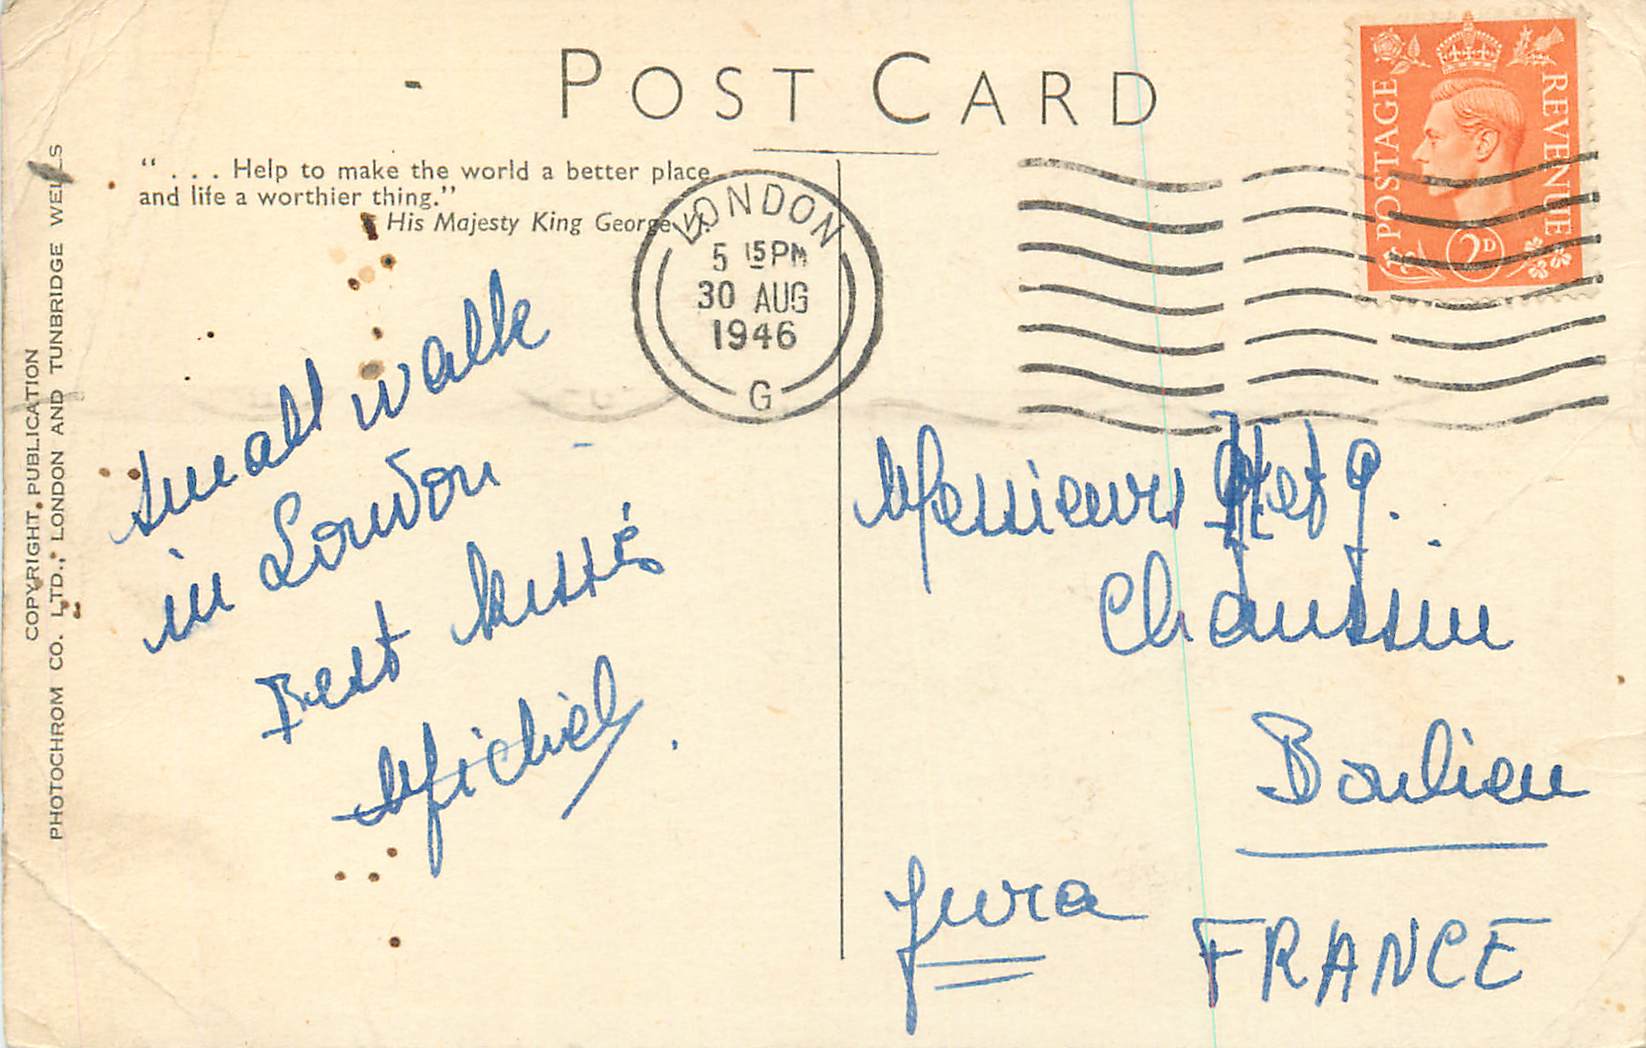 POST CARD
". . . Help to make the world a better place
and life a worthier thing."
His Majesty King George
COPYRIGHT PUBLICATION
PHOTOCHROM CO. LTD., LONDON AND TUNBRIDGE WELLS
POSTAGE
REVENUE
2D
LONDON
5 15 PM
30 AUG
1946
G
small walk
in London
Best
Michel
Messieurs et J.
Chaussin
Jura
FRANCE